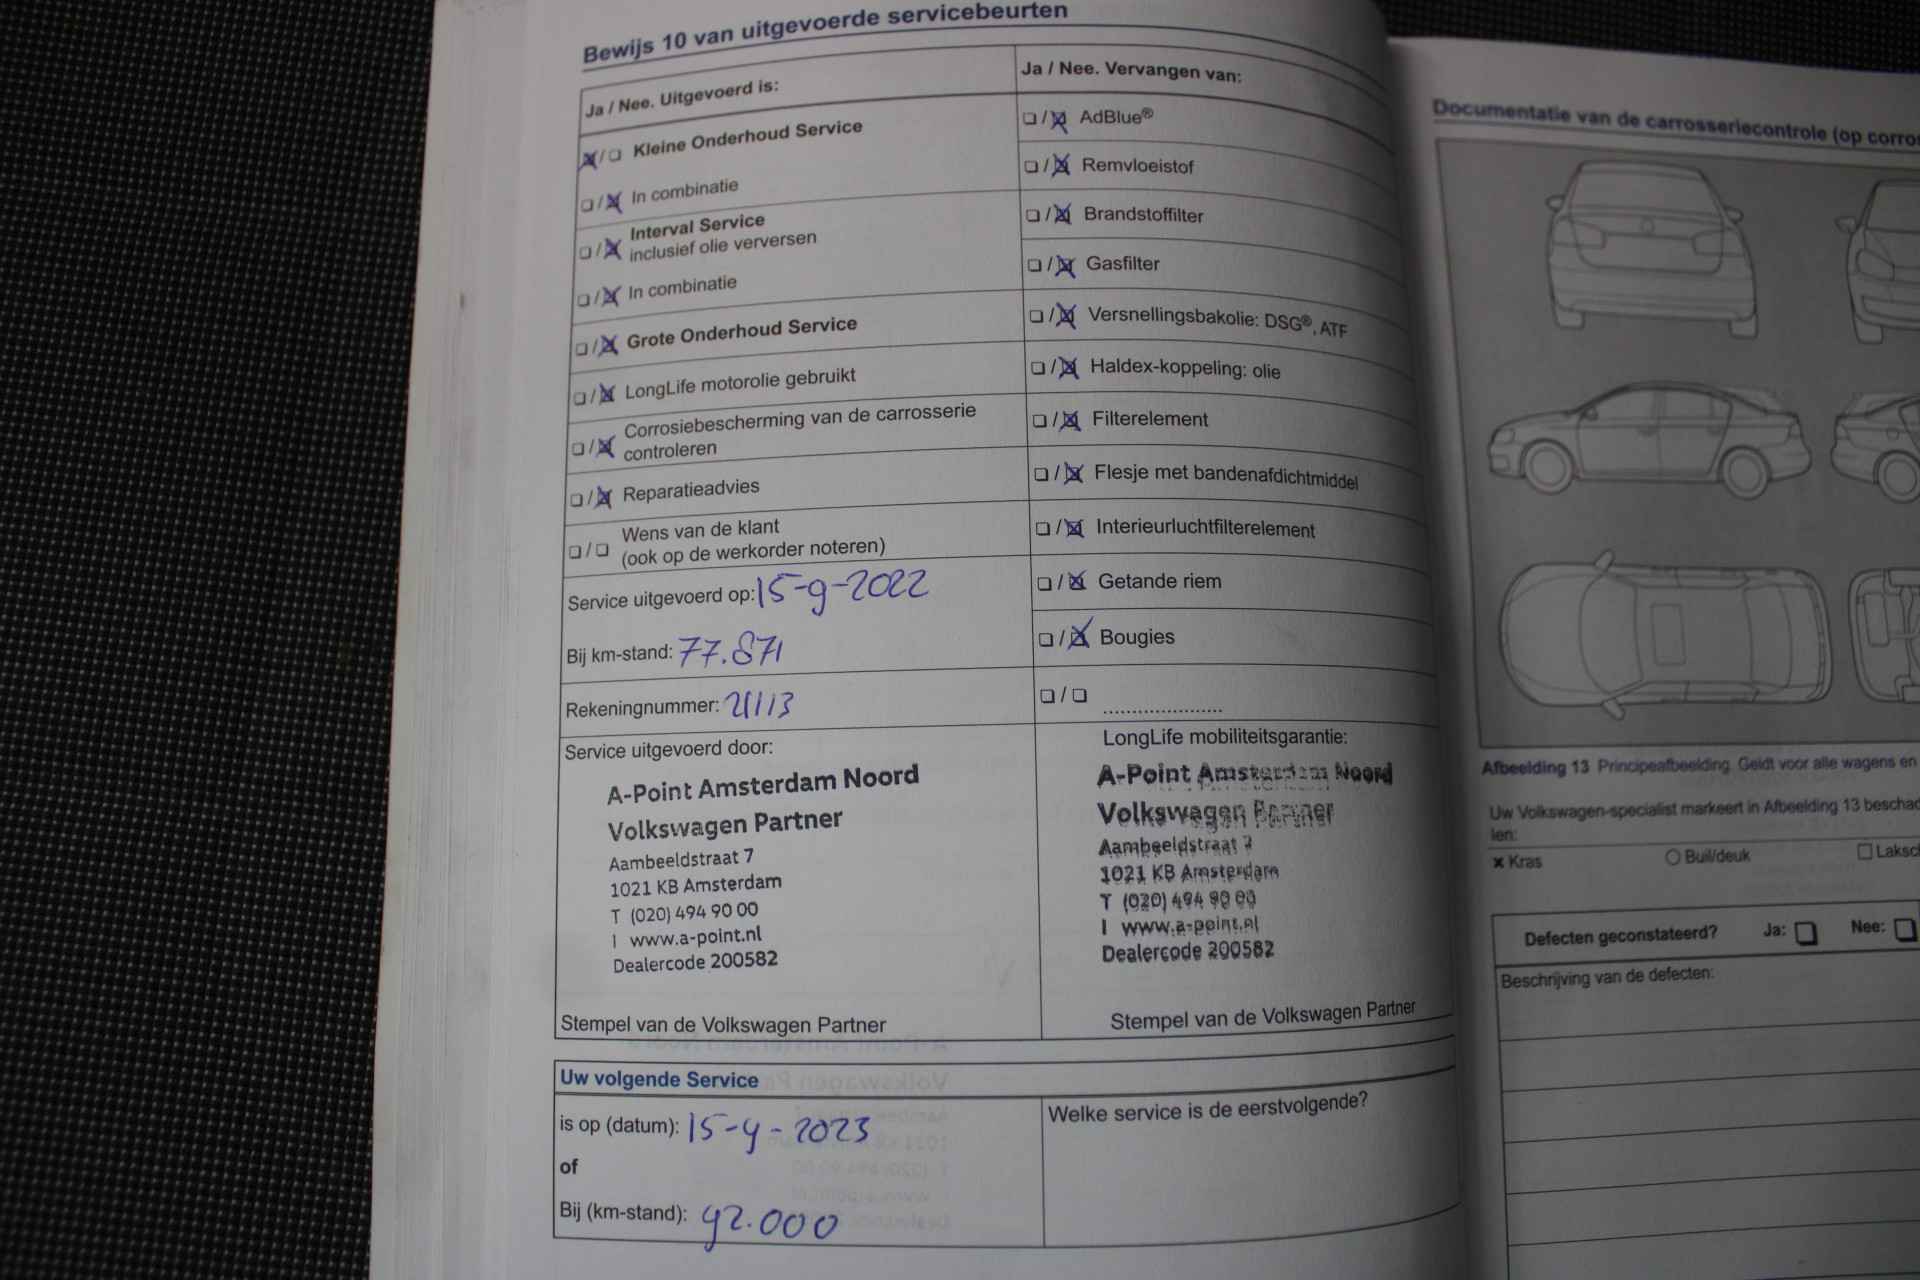 Bewijs 10 van uitgevoerde servicebeurten
Ja / Nee. Uitgevoerd is:
Kleine Onderhoud Service
In combinatie
Interval Service
inclusief olie verversen
In combinatie
Grote Onderhoud Service
LongLife motorolie gebruikt
Corrosiebescherming van de carrosserie
controleren
Reparatieadvies
Wens van de klant
(ook op de werkorder noteren)
Service uitgevoerd op: 15-9-2022
Bij km-stand: 77.871
Rekeningnummer: 21113
Service uitgevoerd door:
A-Point Amsterdam Noord
Volkswagen Partner
Aambeeldstraat 7
1021 KB Amsterdam
T (020) 494 90 00
I www.a-point.nl
Dealercode 200582
Stempel van de Volkswagen Partner
Ja / Nee. Vervangen van:
AdBlue®
Remvloeistof
Brandstoffilter
Gasfilter
Versnellingsbakolie: DSG®, ATF
Haldex-koppeling: olie
Filterelement
Flesje met bandenafdichtmiddel
Interieurluchtfilterelement
Getande riem
Bougies
/ .....................
LongLife mobiliteitsgarantie:
A-Point Amsterdam Noord
Volkswagen Partner
Aambeeldstraat 7
1021 KB Amsterdam
T (020) 494 90 00
I www.a-point.nl
Dealercode 200582
Stempel van de Volkswagen Partner
Uw volgende Service
is op (datum): 15-9-2023
of
Bij (km-stand): 92.000
Welke service is de eerstvolgende?
Documentatie van de carrosseriecontrole (op corros
Afbeelding 13 Principeafbeelding. Geldt voor alle wagens en
Uw Volkswagen-specialist markeert in Afbeelding 13 beschad
len:
x Kras
Buil/deuk
Laksch
Defecten geconstateerd? Ja: Nee:
Beschrijving van de defecten: